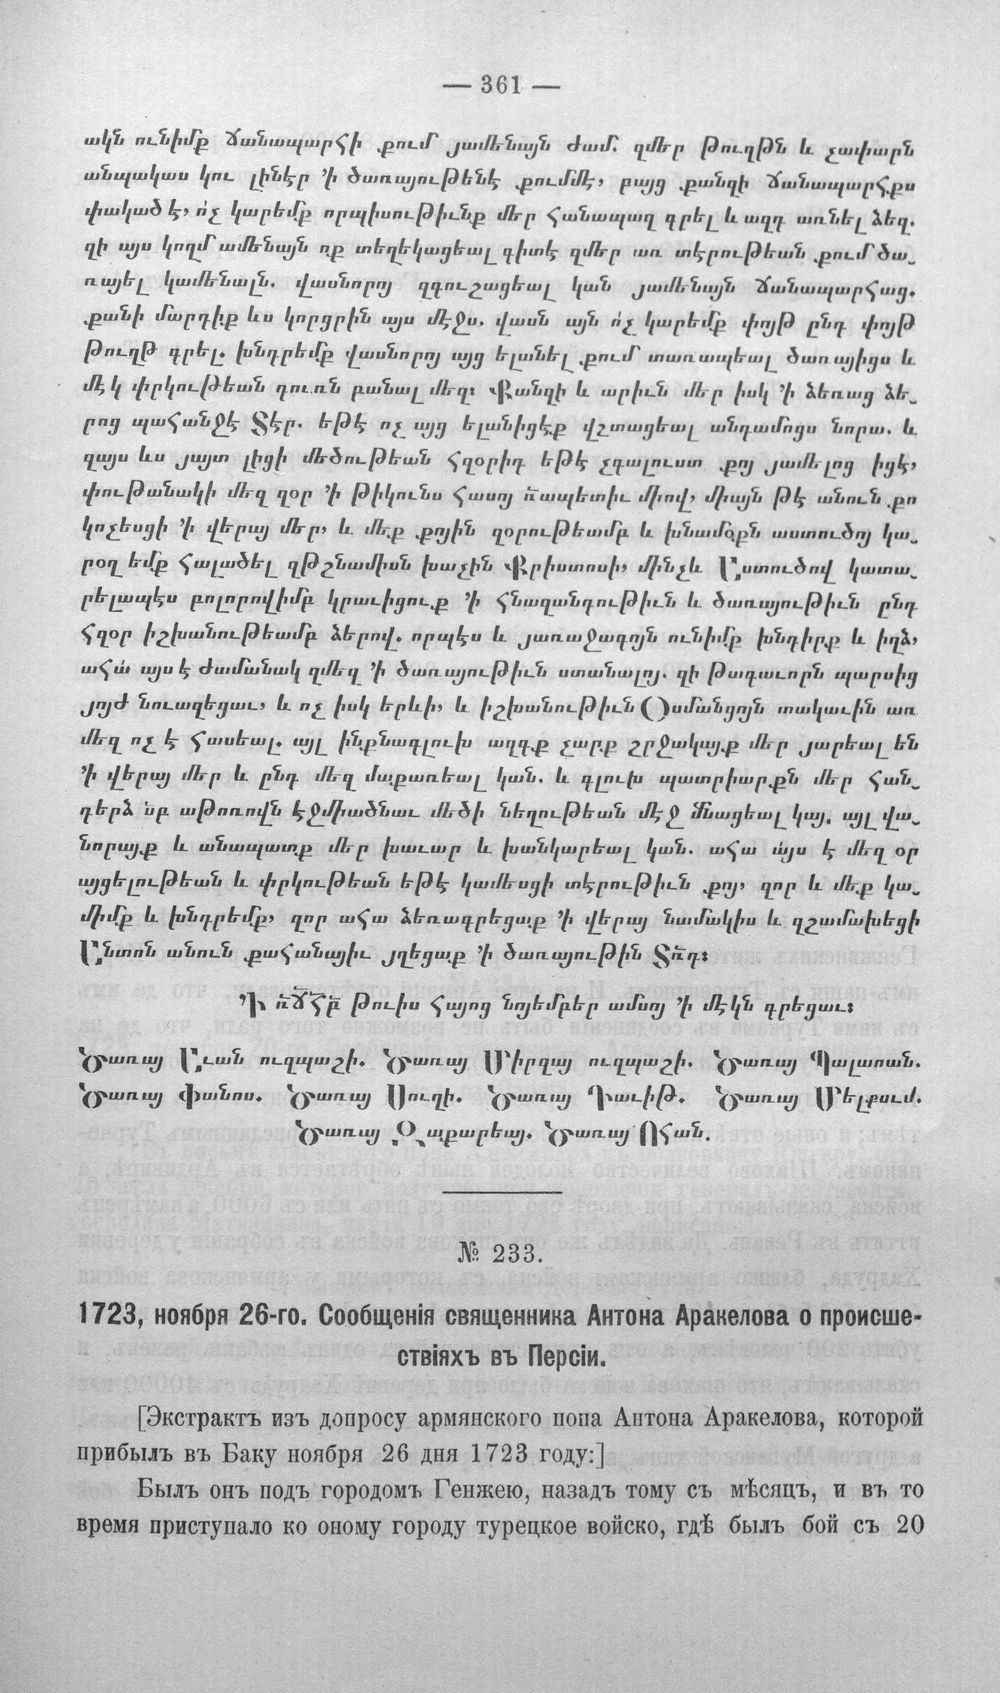 — 361 —
ակն ունիմք ճանապարհի քում յամենայն ժամ. զմեր թուղթն և չափարն
անպակաս կու լինէր ՚ի ծառայութենէ քումմէ, բայց քանզի ճանապարհքս
փակած է, ո՛չ կարեմք որպիսութիւնք մեր հանապազ գրել և ազդ առնել ձեզ.
զի այս կողմ ամենայն ոք տեղեկացեալ գիտէ զմեր առ տէրութեան քում ծա֊
ռայել կամենալն. վասնորոյ զգուշացեալ կան յամենայն ճանապարհաց.
քանի մարդիք ևս կորցրին այս մէջս. վասն այն ո՛չ կարեմք փոյթ ընդ փոյթ
թուղթ գրել. խնդրեմք վասնորոյ այց ելանել քում տառապեալ ծառայիցս և
մէկ փրկութեան դուռն բանալ մեզ։ Քանզի և արիւն մեր իսկ ՚ի ձեռաց ձե֊
րոց պահանջէ Տէր. եթէ ոչ այց ելանիցէք վշտացեալ անդամոցս նորա. և
զայս ևս յայտ լիցի մեծութեան հզօրիդ եթէ չգալուստ քոյ յամելոց իցէ,
փութանակի մեզ զօր ՚ի թիկունս հասոյ պետիւ միով, միայն թէ անուն քո
կոչեսցի ՚ի վերայ մեր, և մեք քոյին զօրութեամբ և խնամօքն աստուծոյ կա֊
րօղ եմք հալածել զթշնամիսն խաչին Քրիստոսի, մինչև Աստուծով կատա֊
րելապէս բոլորովիմբ կրաւիցուք ՚ի հնազանդութիւն և ծառայութիւն ընդ
հզօր իշխանութեամբ ձերով. որպէս և յառաջագոյն ունիմք խնդիրք և իղձ,
ահա այս է ժամանակ զմեզ ՚ի ծառայութիւն ստանալոյ. զի թագաւորն պարսից
յոյժ նուազեցաւ, և ոչ իսկ երևի, և իշխանութիւն Օսմանցոյն տակաւին առ
մեզ ոչ է հասեալ. այլ ինքնագլուխ ազգք չարք շրջակայք մեր յարեալ են
՚ի վերայ մեր և ընդ մեզ մաքառեալ կան. և գլուխ պատրիարքն մեր հան֊
դերձ սբ աթոռովն էջմիածնաւ մեծի նեղութեան մէջ մնացեալ կայ. այլ վա֊
նորայք և անապատք մեր խաւար և խանկարեալ կան. ահա այս է մեզ օր
այցելութեան և փրկութեան եթէ կամեսցի տէրութիւն քոյ, զոր և մեք կա֊
միմք և խնդրեմք, զոր ահա ձեռագրեցաք ՚ի վերայ նամակիս և զշամախեցի
Անտոն անուն քահանայիւ յղեցաք ՚ի ծառայութին Տռդ։
՚Ի ռՃՀԲ թուիս Հայոց նոյեմբեր ամսոյ ՚ի մէկն գրեցաւ։
Ծառայ Աւան ուզպաշի. Ծառայ Միրզայ ուզպաշի. Ծառայ Պալասան.
Ծառայ Փանոս. Ծառայ Սուղի. Ծառայ Դաւիթ. Ծառայ Մելքսւմ.
Ծառայ Զաքարեայ. Ծառայ Օհան.
№ 233.
1723, ноября 26-го. Сообщенія священника Антона Аракелова о происше-
ствіяхъ въ Персіи.
[Экстрактъ изъ допросу армянского попа Антона Аракелова, которой
прибылъ въ Баку ноября 26 дня 1723 году:]
Былъ онъ подъ городомъ Генжею, назадъ тому съ мѣсяцъ, и въ то
время приступало ко оному городу турецкое войско, гдѣ былъ бой съ 20